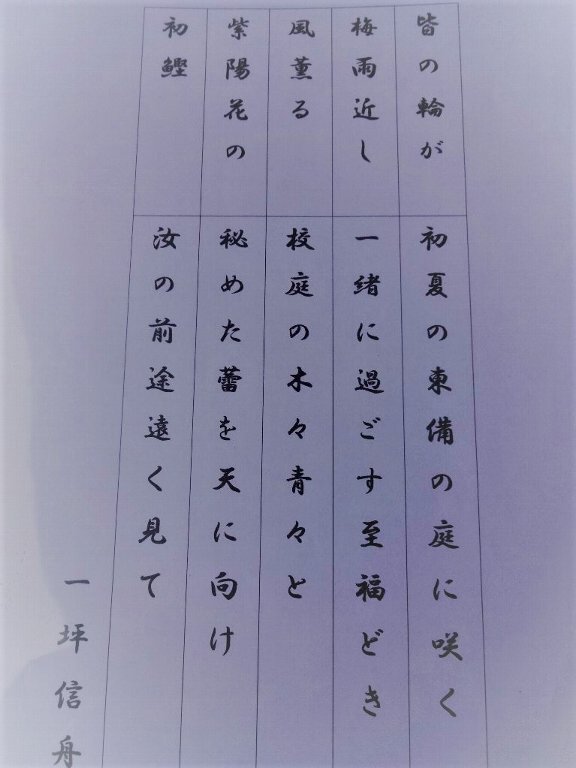 皆の輪が 初夏の東備の庭に咲く
梅雨近し 一緒に過ごす至福どき
風薫る 校庭の木々青々と
紫陽花の 秘めた蕾を天に向け
初鰹 汝の前途遠く見て
一坪信舟